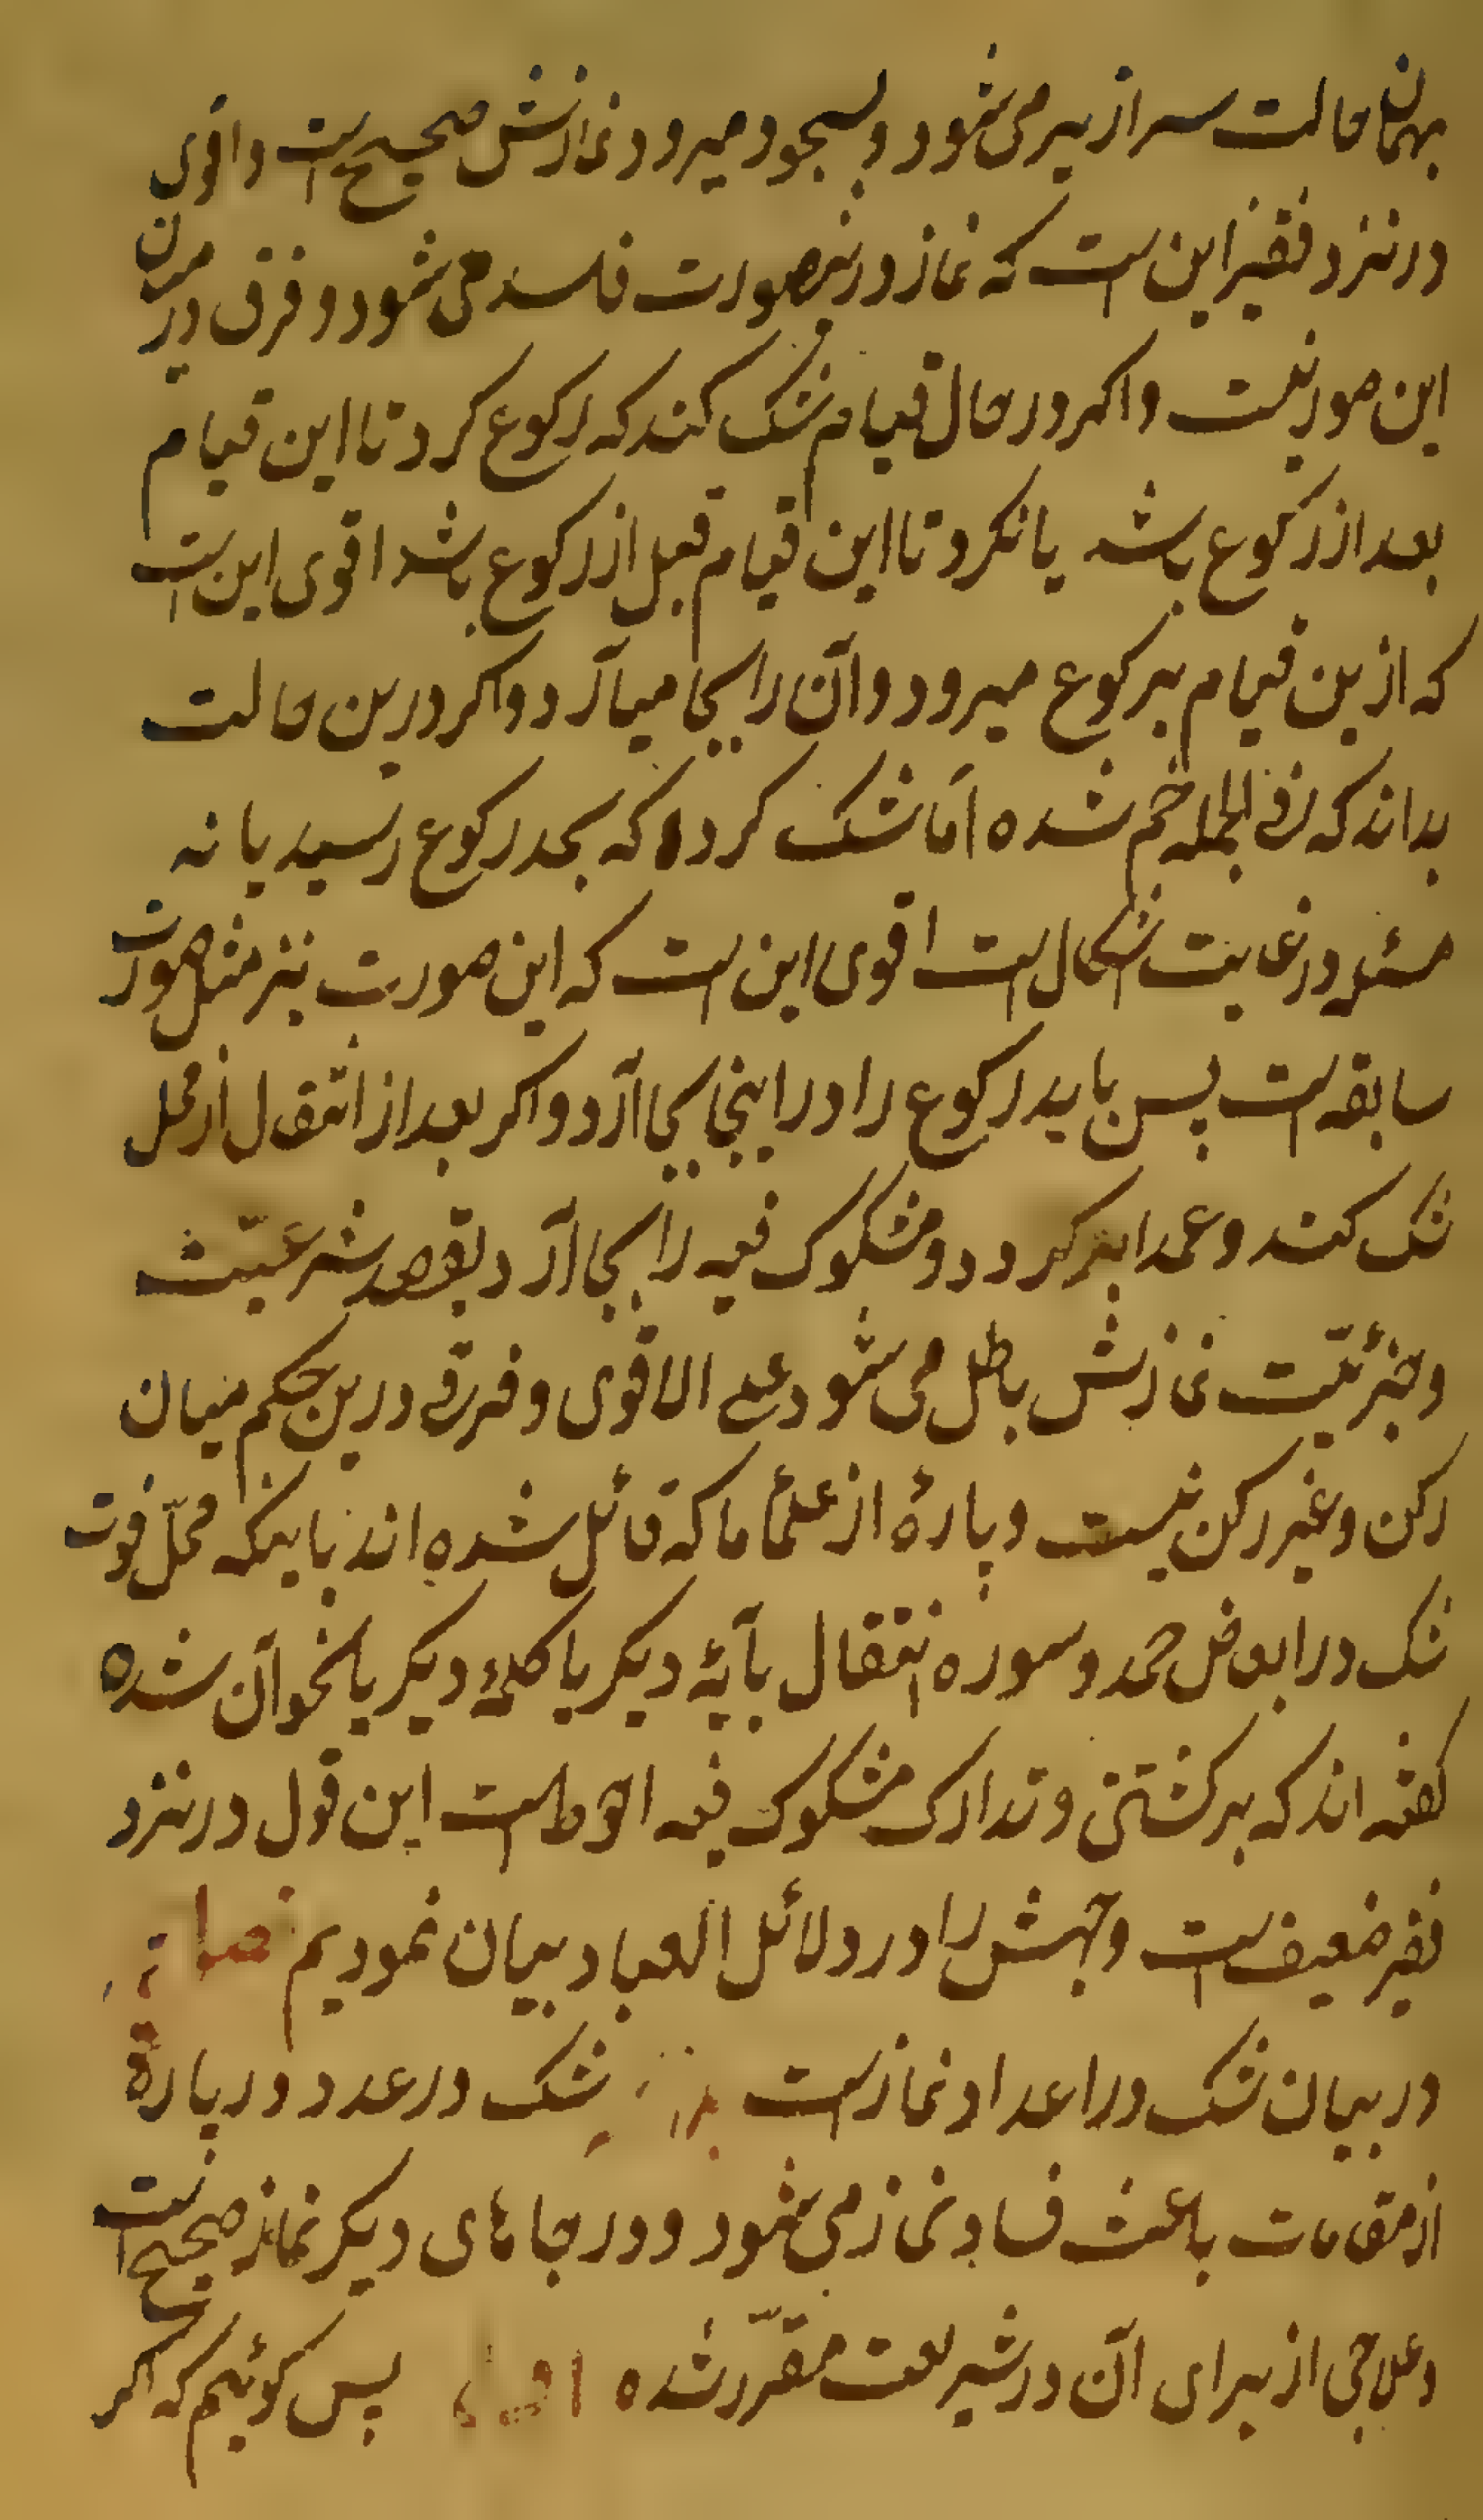 بهمان حالت سرازیر می شود و بسجود میرود نمازش صحیح است و اقوی
در نزد فقیر این است که نماز درینصورت فاسد می شود و فرق در میان
این صور نیست و اکر در حال قیام شک کند که رکوع کرد تا این قیام
بعد از رکوع باشد یا نکرد تا این قیام قبل از رکوع باشد اقوی این است
که ازین قیام برکوع میرود و آن را بجا میآرد و اکر درین حالت
بداند که فی الجمله خم شده اما شک کرده که بحد رکوع رسید یا نه
مسئله در غایت اشکال است اقوی این است که این صورت نیز مثل صورت
سابقه است پس باید رکوع را در اینجا بجا آرد و اکر بعد از انتقال از محل
شک کند و عمدا برکردد و مشکوک فیه را بجا آرد بقصد شرعیّت
و جزئیّت نمازش باطل می شود علی الاقوی و فرقی درین حکم میان
رکن و غیر رکن نیست و پارۀ از علمأ ما که قائل شده اند باینکه محلّ فوت
شک در ابعاض حمد و سوره انتقال بآیۀ دیکر یا کلمۀ دیکر یا نحو آن شده
کفته اند که برکشتن و تدارک مشکوک فیه احوط است این قول در نزد
فقیر ضعیف است وجهش را در دلائل العباد بیان نمودیم فصل
در بیان شک در اعداد نماز است شک در عدد در پارۀ
از مقامات باعث فساد نماز می شود و در جاهای دیکر نماز صحیح است
و علاجی از برای آن در شریعت مقرّر شده پس کوئیم که اکر